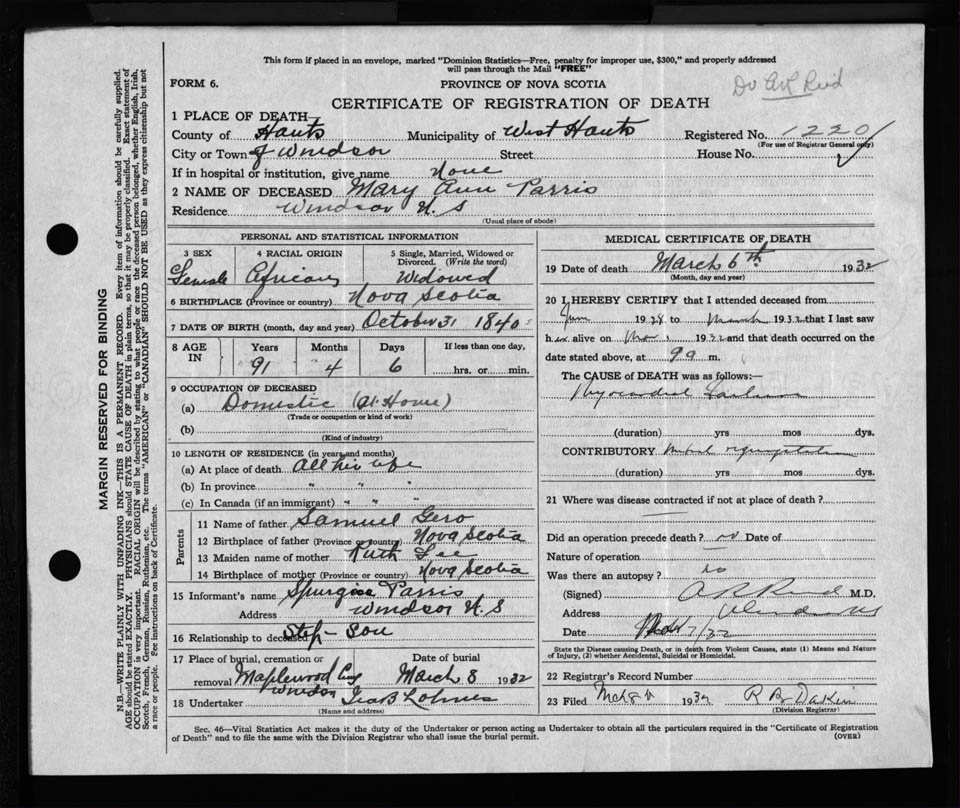 This form if placed in an envelope, marked "Dominion Statistics—Free, penalty for improper use, $300," and properly addressed
will pass through the Mail "FREE"
FORM 6.
PROVINCE OF NOVA SCOTIA
Dr Reid
CERTIFICATE OF REGISTRATION OF DEATH
1 PLACE OF DEATH
County of Hants Municipality of West Hants Registered No. 1220
(For use of Registrar General only)
City or Town of Windsor Street House No.
If in hospital or institution, give name None
2 NAME OF DECEASED Mary Ann Parris
Residence Windsor N. S
(Usual place of abode)
PERSONAL AND STATISTICAL INFORMATION
3 SEX 4 RACIAL ORIGIN 5 Single, Married, Widowed or
Divorced. (Write the word)
Female African Widowed
6 BIRTHPLACE (Province or country) Nova Scotia
7 DATE OF BIRTH (month, day and year) October 31 1840
8 AGE IN
Years Months Days If less than one day,
91 4 6 hrs. or min.
9 OCCUPATION OF DECEASED
(a) Domestic (At Home)
(Trade or occupation or kind of work)
(b)
(Kind of industry)
10 LENGTH OF RESIDENCE (in years and months)
(a) At place of death All his life
(b) In province " " "
(c) In Canada (if an immigrant) " " "
Parents
11 Name of father Samuel Gero
12 Birthplace of father (Province or country) Nova Scotia
13 Maiden name of mother Ruth Lee
14 Birthplace of mother (Province or country) Nova Scotia
15 Informant's name Parris
Address Windsor N. S
16 Relationship to deceased Step-Son
17 Place of burial, cremation or Date of burial
removal Maplewood Windsor March 8 1932
18 Undertaker
(Name and address)
MEDICAL CERTIFICATE OF DEATH
19 Date of death March 6th 1932
(Month, day and year)
20 I HEREBY CERTIFY that I attended deceased from
1928 to March 1932 that I last saw
her alive on 1932 and that death occurred on the
date stated above, at 9 a m.
The CAUSE of DEATH was as follows:—
Myocardial Failure
(duration) yrs mos dys.
CONTRIBUTORY Mitral regurgitation
(duration) yrs mos dys.
21 Where was disease contracted if not at place of death?
Did an operation precede death? no Date of
Nature of operation
Was there an autopsy? no
(Signed) Reid M.D.
Address Windsor NS
Date 7/32
State the Disease causing Death, or in death from Violent Causes, state (1) Means and Nature
of Injury, (2) whether Accidental, Suicidal or Homicidal.
22 Registrar's Record Number
23 Filed 1932 R B Dakin
(Division Registrar)
Sec. 46—Vital Statistics Act makes it the duty of the Undertaker or person acting as Undertaker to obtain all the particulars required in the "Certificate of Registration
of Death" and to file the same with the Division Registrar who shall issue the burial permit.
(OVER)
MARGIN RESERVED FOR BINDING
N.B.—WRITE PLAINLY WITH UNFADING INK—THIS IS A PERMANENT RECORD. Every item of information should be carefully supplied.
AGE should be stated EXACTLY. PHYSICIANS should STATE CAUSE OF DEATH in plain terms, so that it may be properly classified. Exact statement of
OCCUPATION is very important. RACIAL ORIGIN will be described by stating to what people or race the deceased person belonged, whether English, Irish,
Scotch, French, German, Russian, Ruthenian, etc. The terms "AMERICAN" or "CANADIAN" SHOULD NOT BE USED as they express citizenship but not
a race or people. See instructions on back of Certificate.